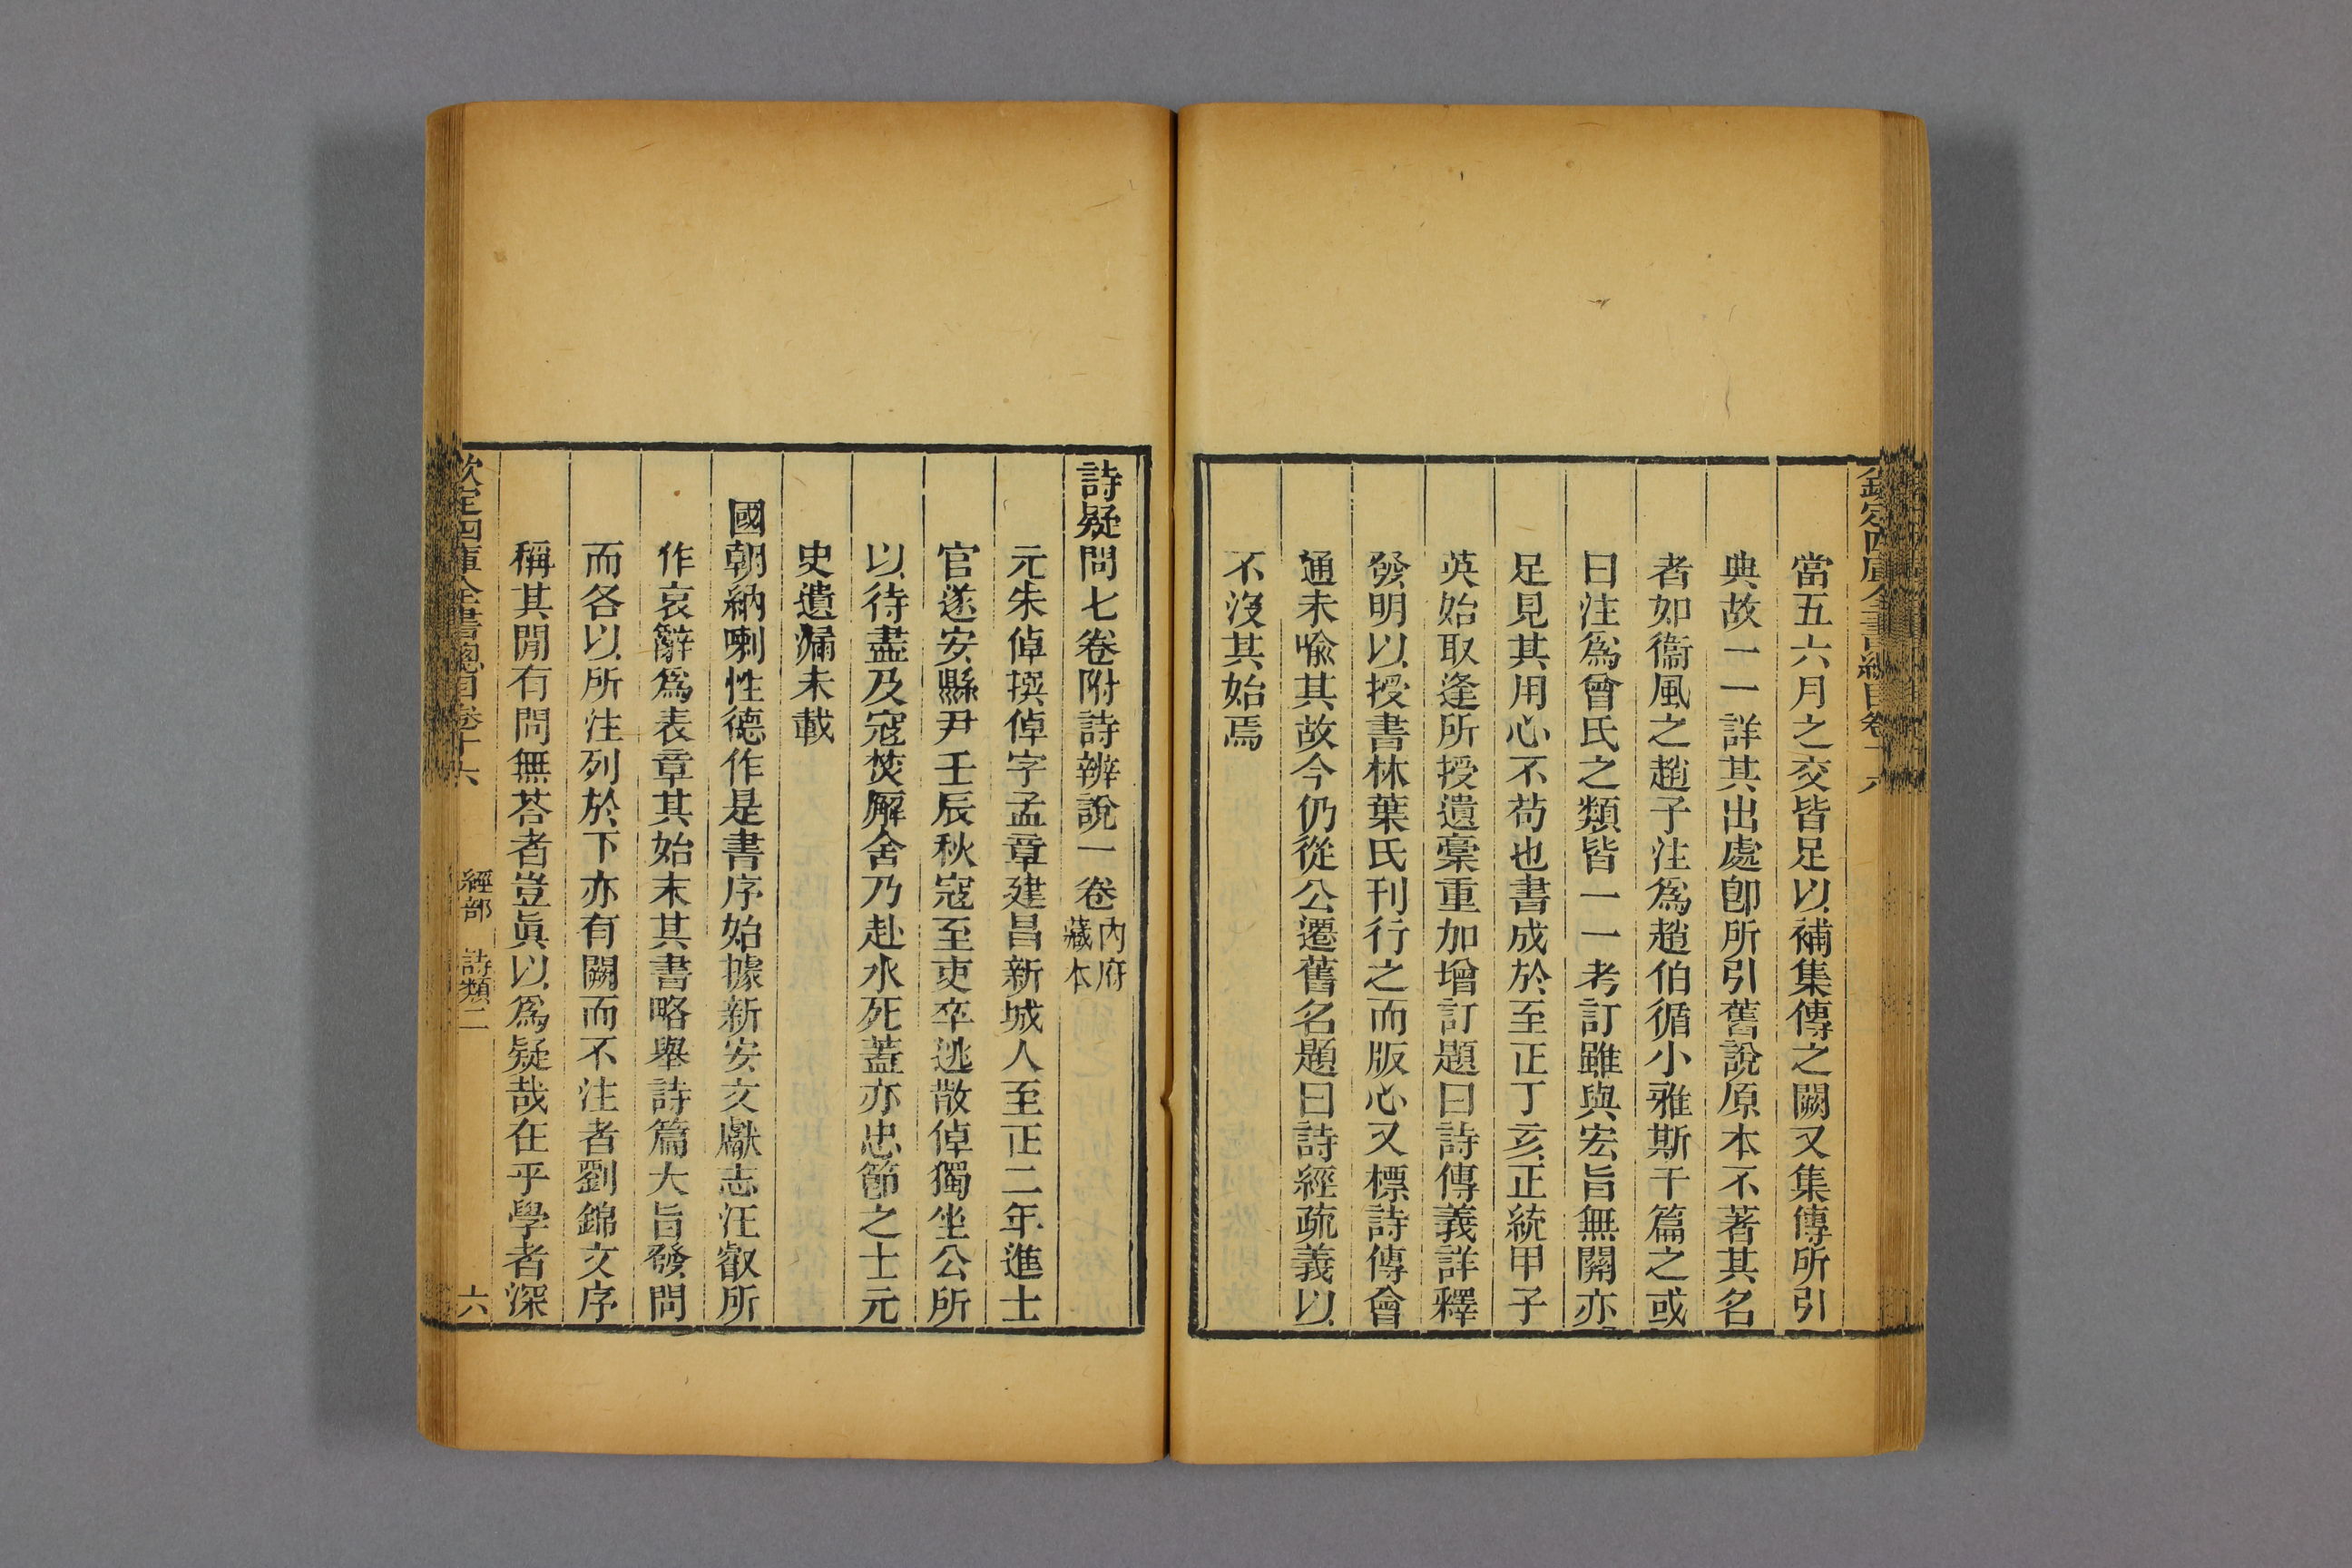 欽定四庫全書總目卷十六
當五六月之交皆足以補集傳之闕又集傳所引
典故一一詳其出處卽所引舊說原本不著其名
者如衞風之趙子注爲趙伯循小雅斯干篇之或
曰注爲曾氏之類皆一一考訂雖與宏旨無關亦
足見其用心不苟也書成於至正丁亥正統甲子
英始取逢所授遺稾重加增訂題曰詩傳義詳釋
發明以授書林葉氏刊行之而版心又標詩傳會
通未喩其故今仍從公遷舊名題曰詩經疏義以
不沒其始焉
詩疑問七卷附詩辨說一卷內府藏本
元朱倬撰倬字孟章建昌新城人至正二年進士
官遂安縣尹壬辰秋寇至吏卒逃散倬獨坐公所
以待盡及寇焚廨舍乃赴水死蓋亦忠節之士元
史遺漏未載
國朝納喇性德作是書序始據新安文獻志汪叡所
作哀辭爲表章其始末其書略舉詩篇大旨發問
而各以所注列於下亦有闕而不注者劉錦文序
稱其閒有問無荅者豈眞以爲疑哉在乎學者深
欽定四庫全書總目卷十六 經部 詩類二 六